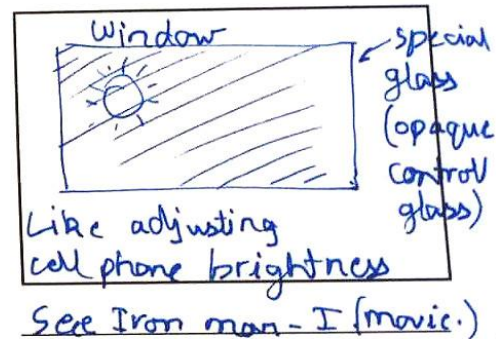 Window
special
glass
(opaque
control
glass)
Like adjusting
cell phone brightness
See Iron man-I (movie.)